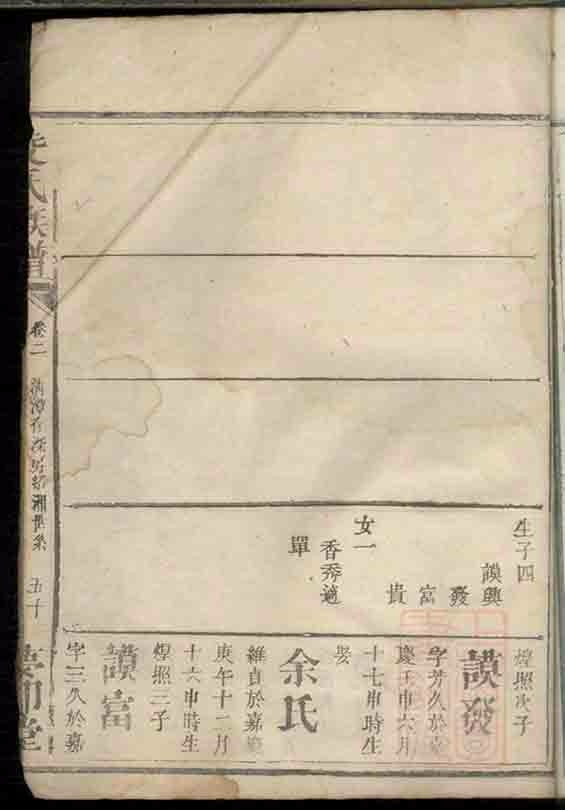 生子四
謨興
發
富
貴
女一
香秀適
單
煌照次子
謨發
字芳久於嘉
慶壬申六月
十七申時生
娶
余氏
維貞於嘉慶
庚午十二月
十六申時生
煌照三子
謨富
字三久於嘉
氏族譜
卷二
五十
堂